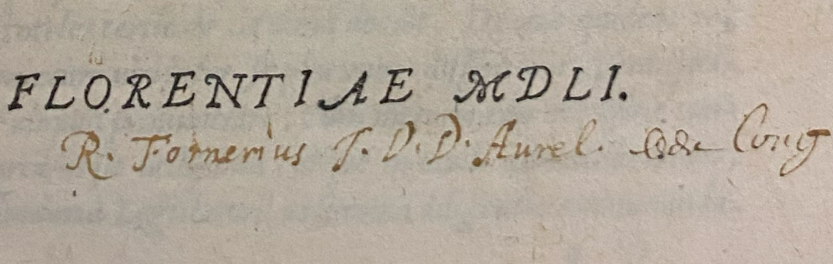 FLORENTIAE MDLI.
R. Fornerius J. D. D. Aurel. Cong